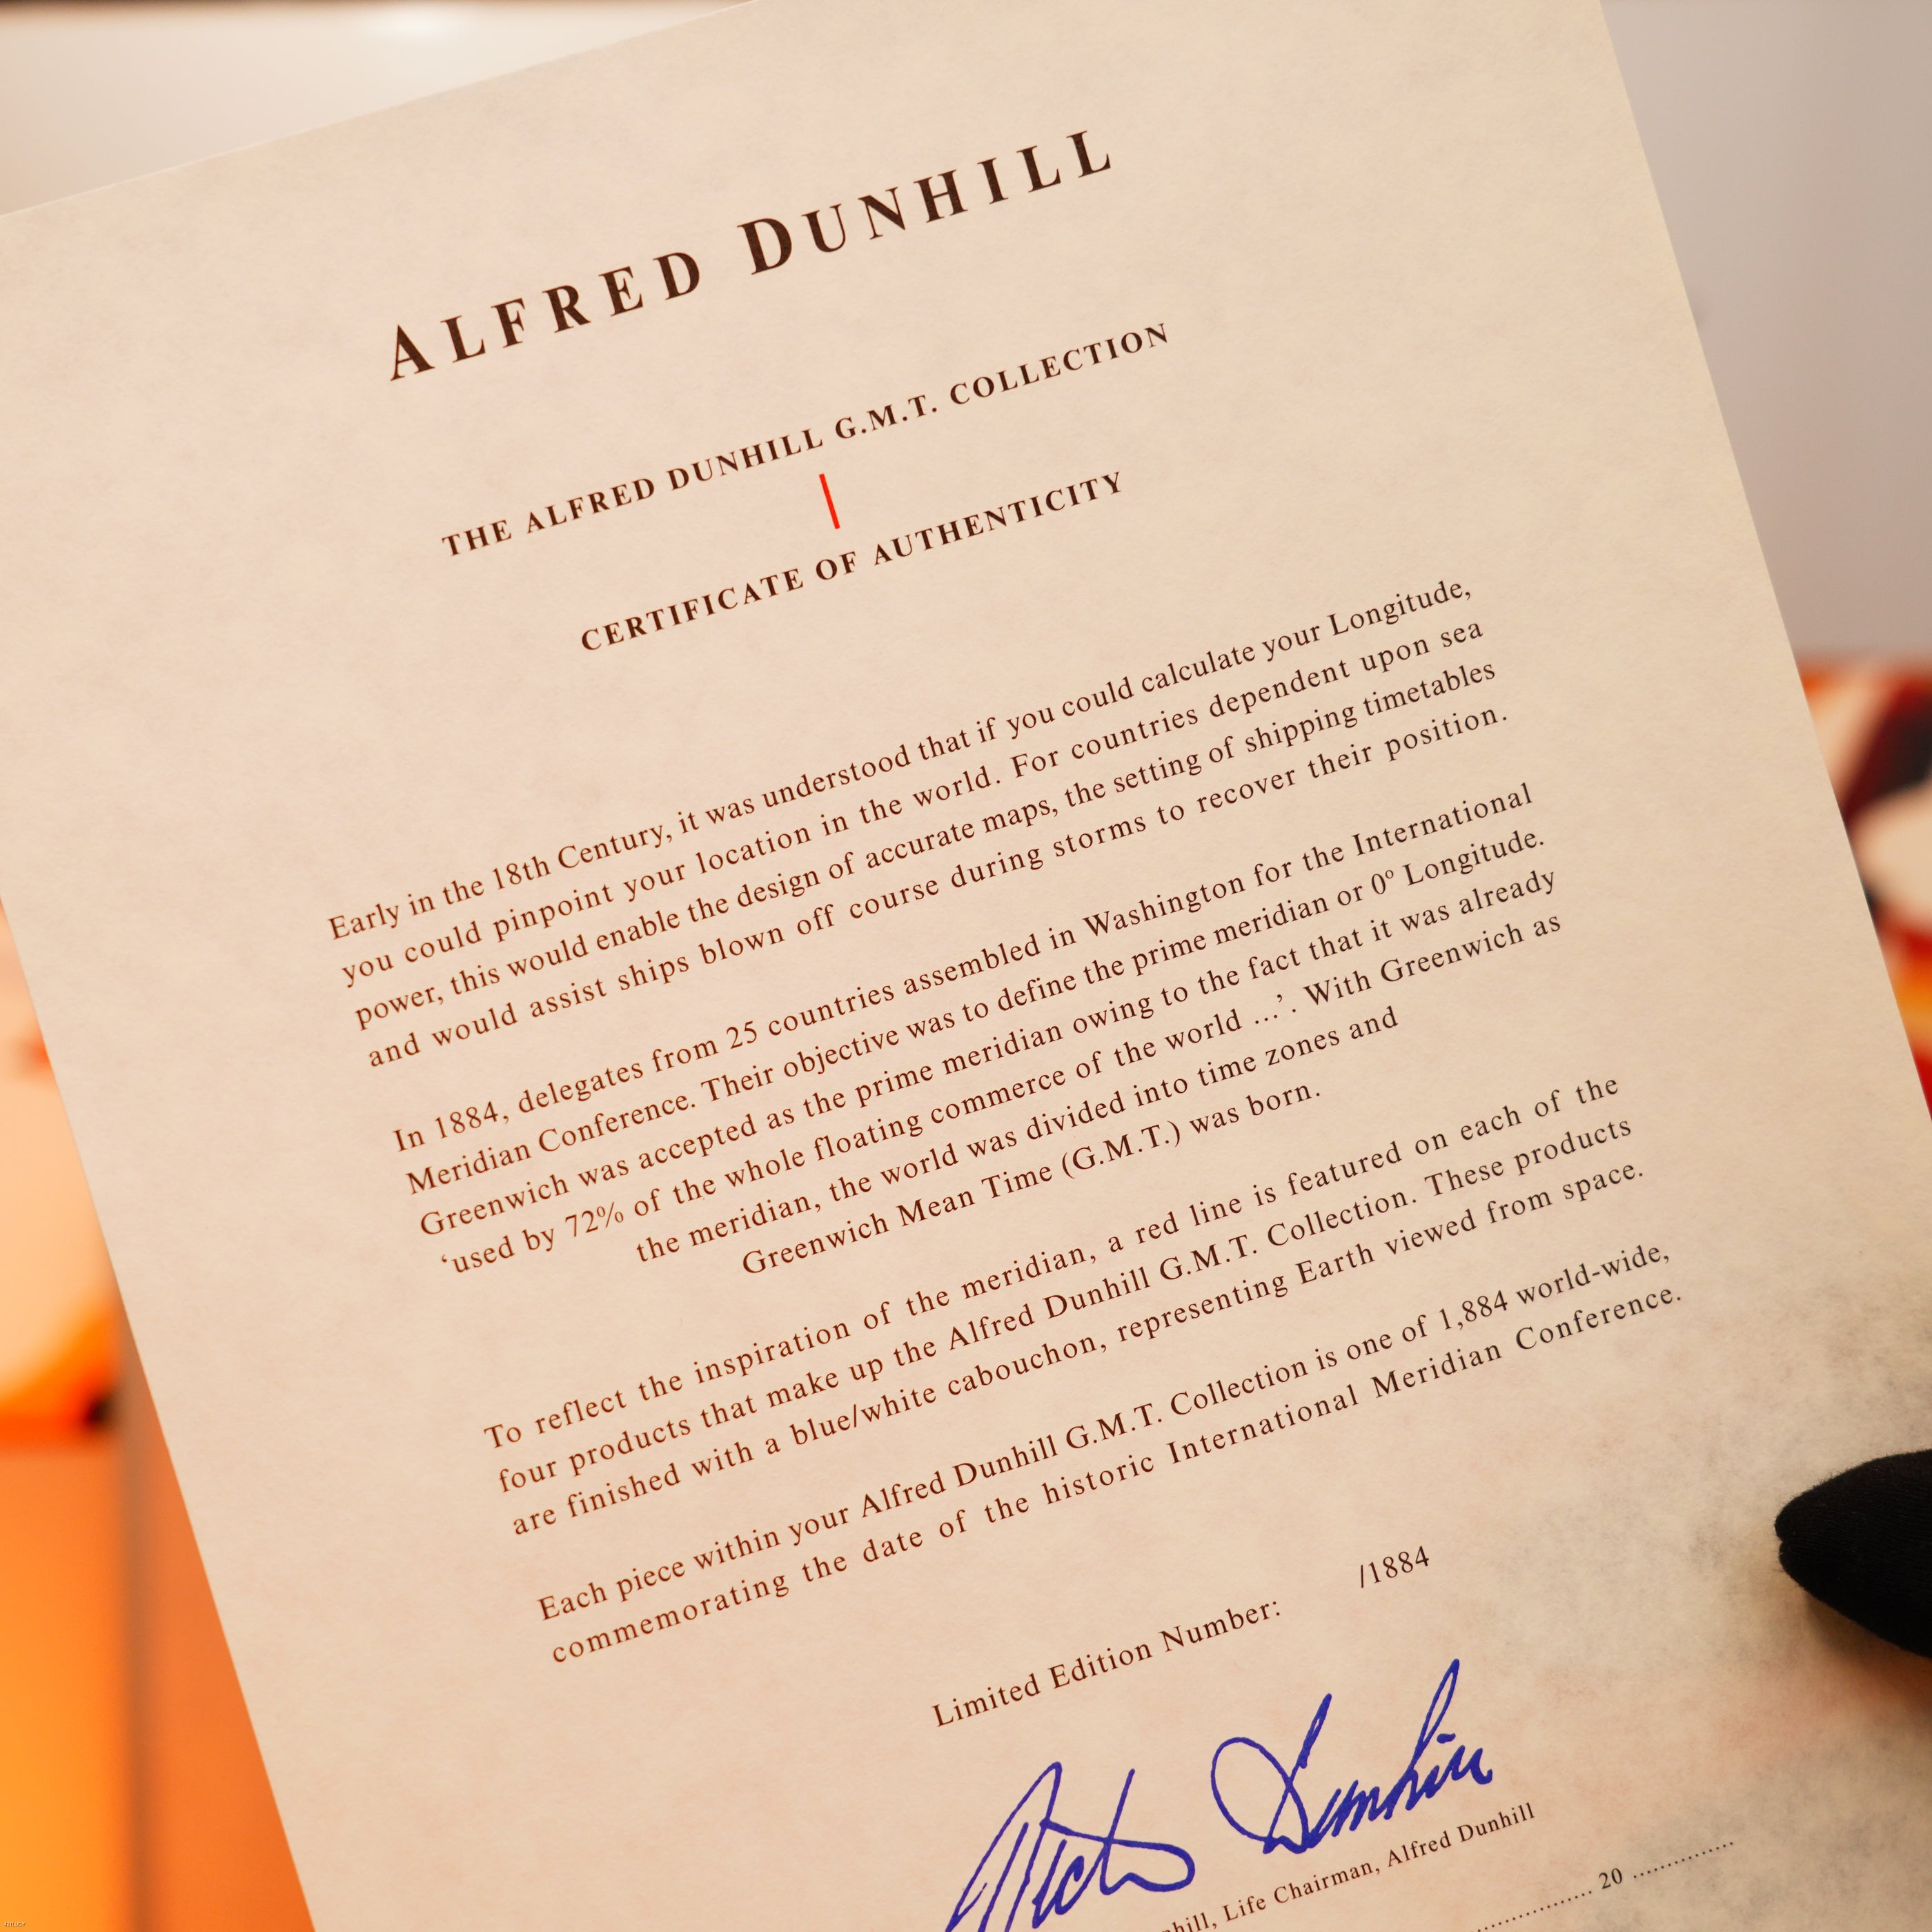 ALFRED DUNHILL
THE ALFRED DUNHILL G.M.T. COLLECTION
CERTIFICATE OF AUTHENTICITY
Early in the 18th Century, it was understood that if you could calculate your Longitude,
you could pinpoint your location in the world. For countries dependent upon sea
power, this would enable the design of accurate maps, the setting of shipping timetables
and would assist ships blown off course during storms to recover their position.
In 1884, delegates from 25 countries assembled in Washington for the International
Meridian Conference. Their objective was to define the prime meridian or 0º Longitude.
Greenwich was accepted as the prime meridian owing to the fact that it was already
‘used by 72% of the whole floating commerce of the world ...’. With Greenwich as
the meridian, the world was divided into time zones and
Greenwich Mean Time (G.M.T.) was born.
To reflect the inspiration of the meridian, a red line is featured on each of the
four products that make up the Alfred Dunhill G.M.T. Collection. These products
are finished with a blue/white cabouchon, representing Earth viewed from space.
Each piece within your Alfred Dunhill G.M.T. Collection is one of 1,884 world-wide,
commemorating the date of the historic International Meridian Conference.
Limited Edition Number: /1884
Dunhill
hill, Life Chairman, Alfred Dunhill
.................. 20 ...............